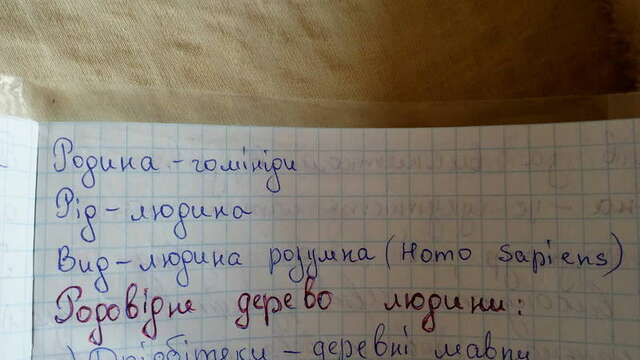 Родина - гомініди
Рід - людина
Вид - людина розумна (Homo Sapiens)
Родовідне дерево людини:
) Дріобітеки - деревні мавпи